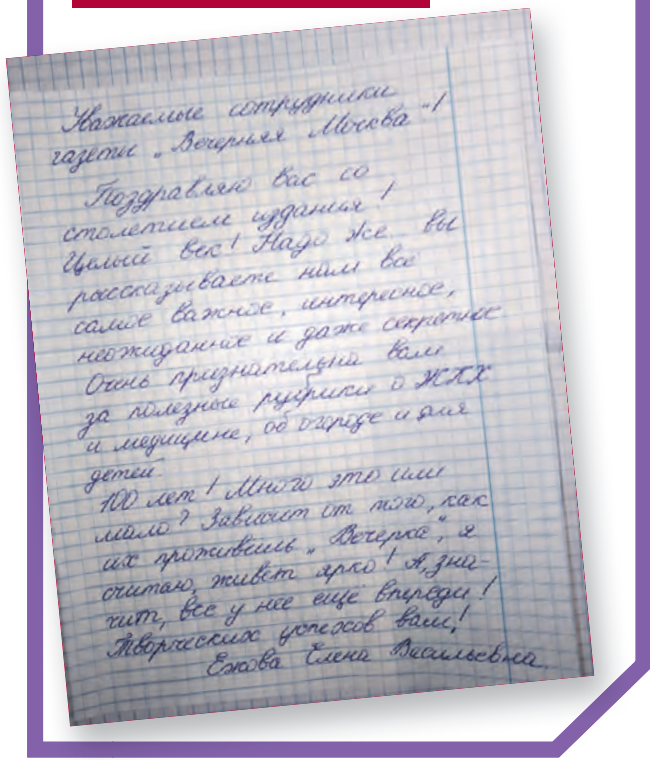 Уважаемые сотрудники
газеты „Вечерняя Москва"!
Поздравляю вас со
столетием издания!
Целый век! Надо же... вы
рассказываете нам всё
самое важное, интересное,
неожиданное и даже секретное
Очень признательна вам
за полезные рубрики о ЖКХ
и медицине, об огороде и для
детей.
100 лет! Много это или
мало? Зависит от того, как
их проживёшь. „Вечерка", я
считаю, живёт ярко! А, зна-
чит, все у неё еще впереди!
Творческих успехов вам!
Ежова Елена Васильевна.